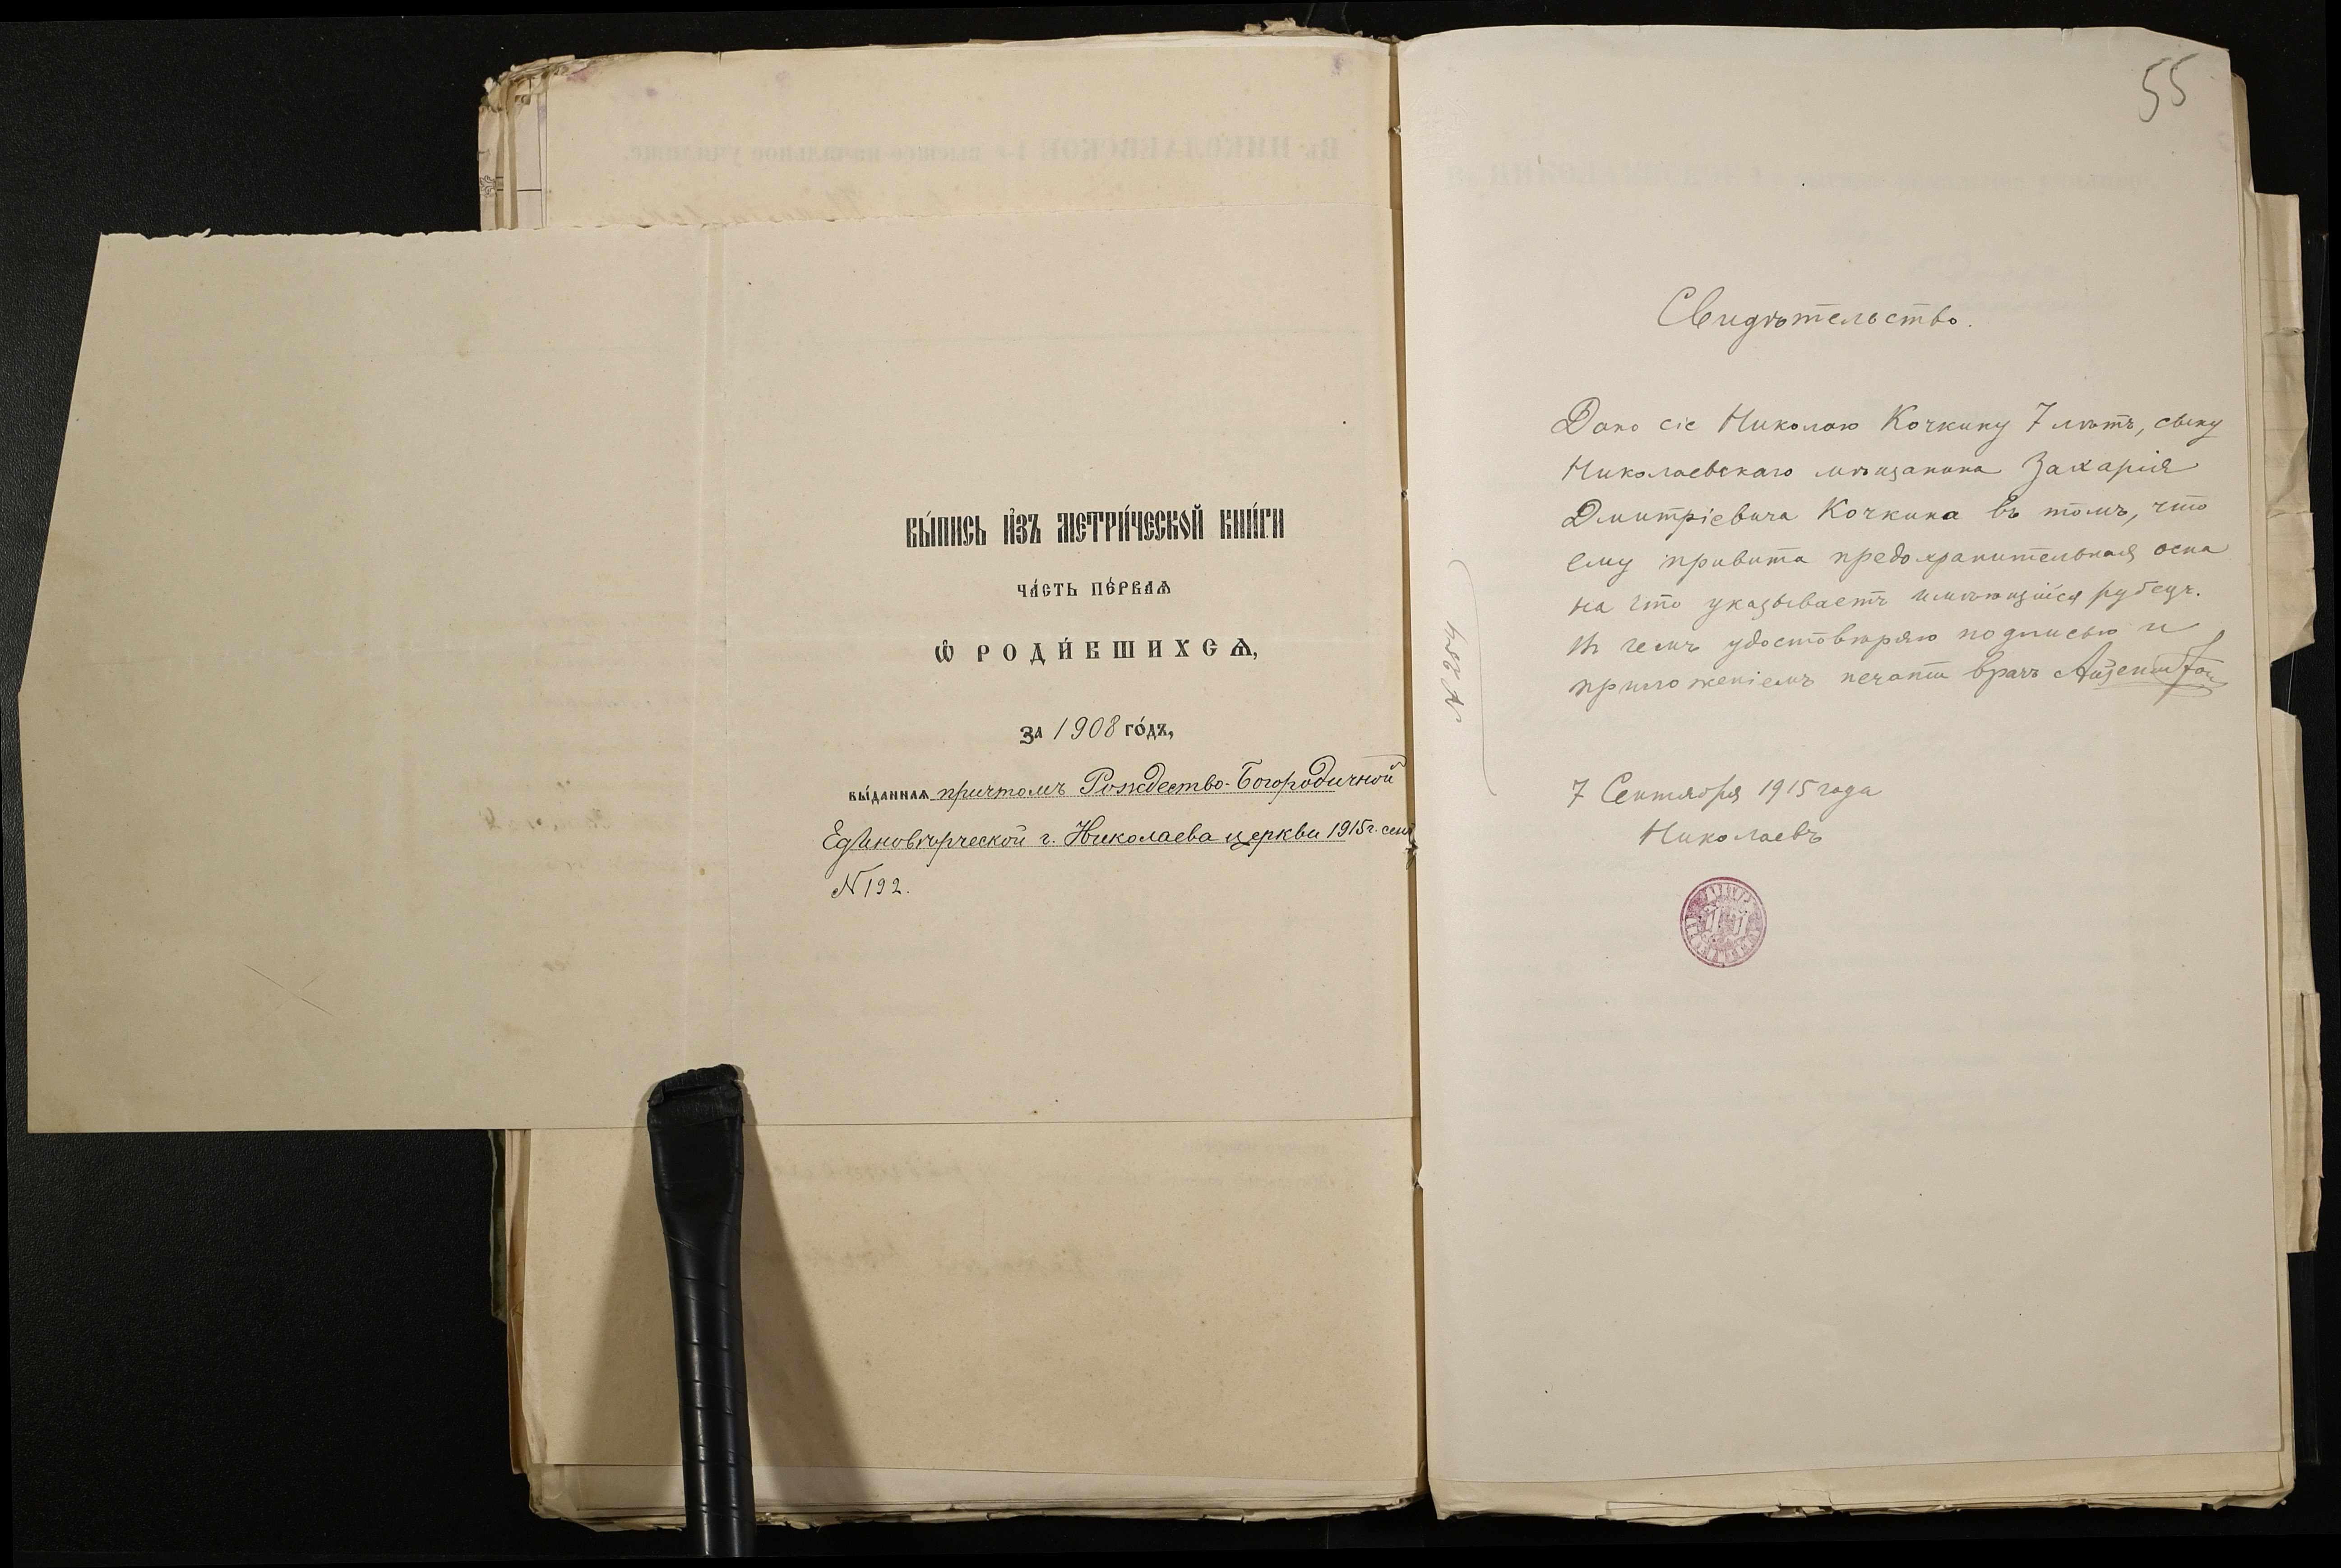 вы́пись и́зъ метри́ческой кни́ги
ча́сть пе́рваѧ
Ѡ роди́вшихсѧ,
за 1908 го́дъ,
вы́даннаѧ причтомъ Рождество-Богородичной
Единовѣрческой г. Николаева церкви 1915 г. сент
№ 192.
55
Свидѣтельство.
Дано сіе Николаю Кочкину 7 лѣтъ, сыну
Николаевскаго мѣщанина Захарія
Дмитріевича Кочкина въ томъ, что
ему привита предохранительная оспа
на что указываетъ имѣющійся рубецъ.
Въ чемъ удостовѣряю подписью и
приложеніемъ печати врачъ
7 Сентября 1915 года
Николаевъ